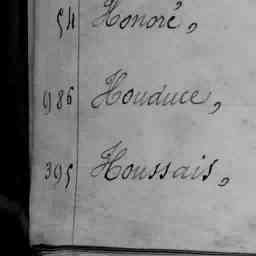 54 Honoré,
986 Houduce,
395 Houssais,